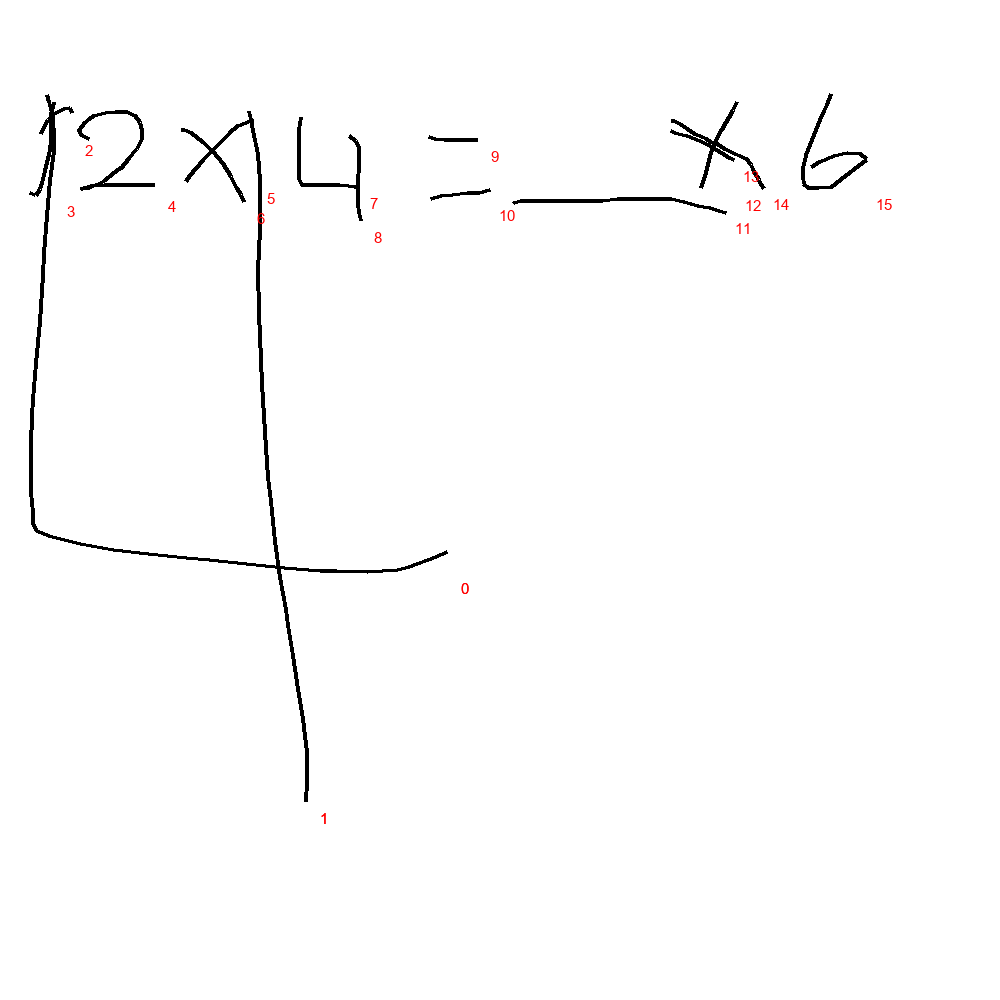 12 × 4 = ___ × 6
2
3
4
5
6
7
8
9
10
11
12
13
14
15
0
1